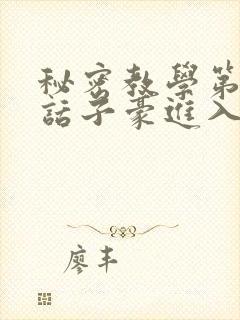 秘密教學第
話子豪進入
廖丰